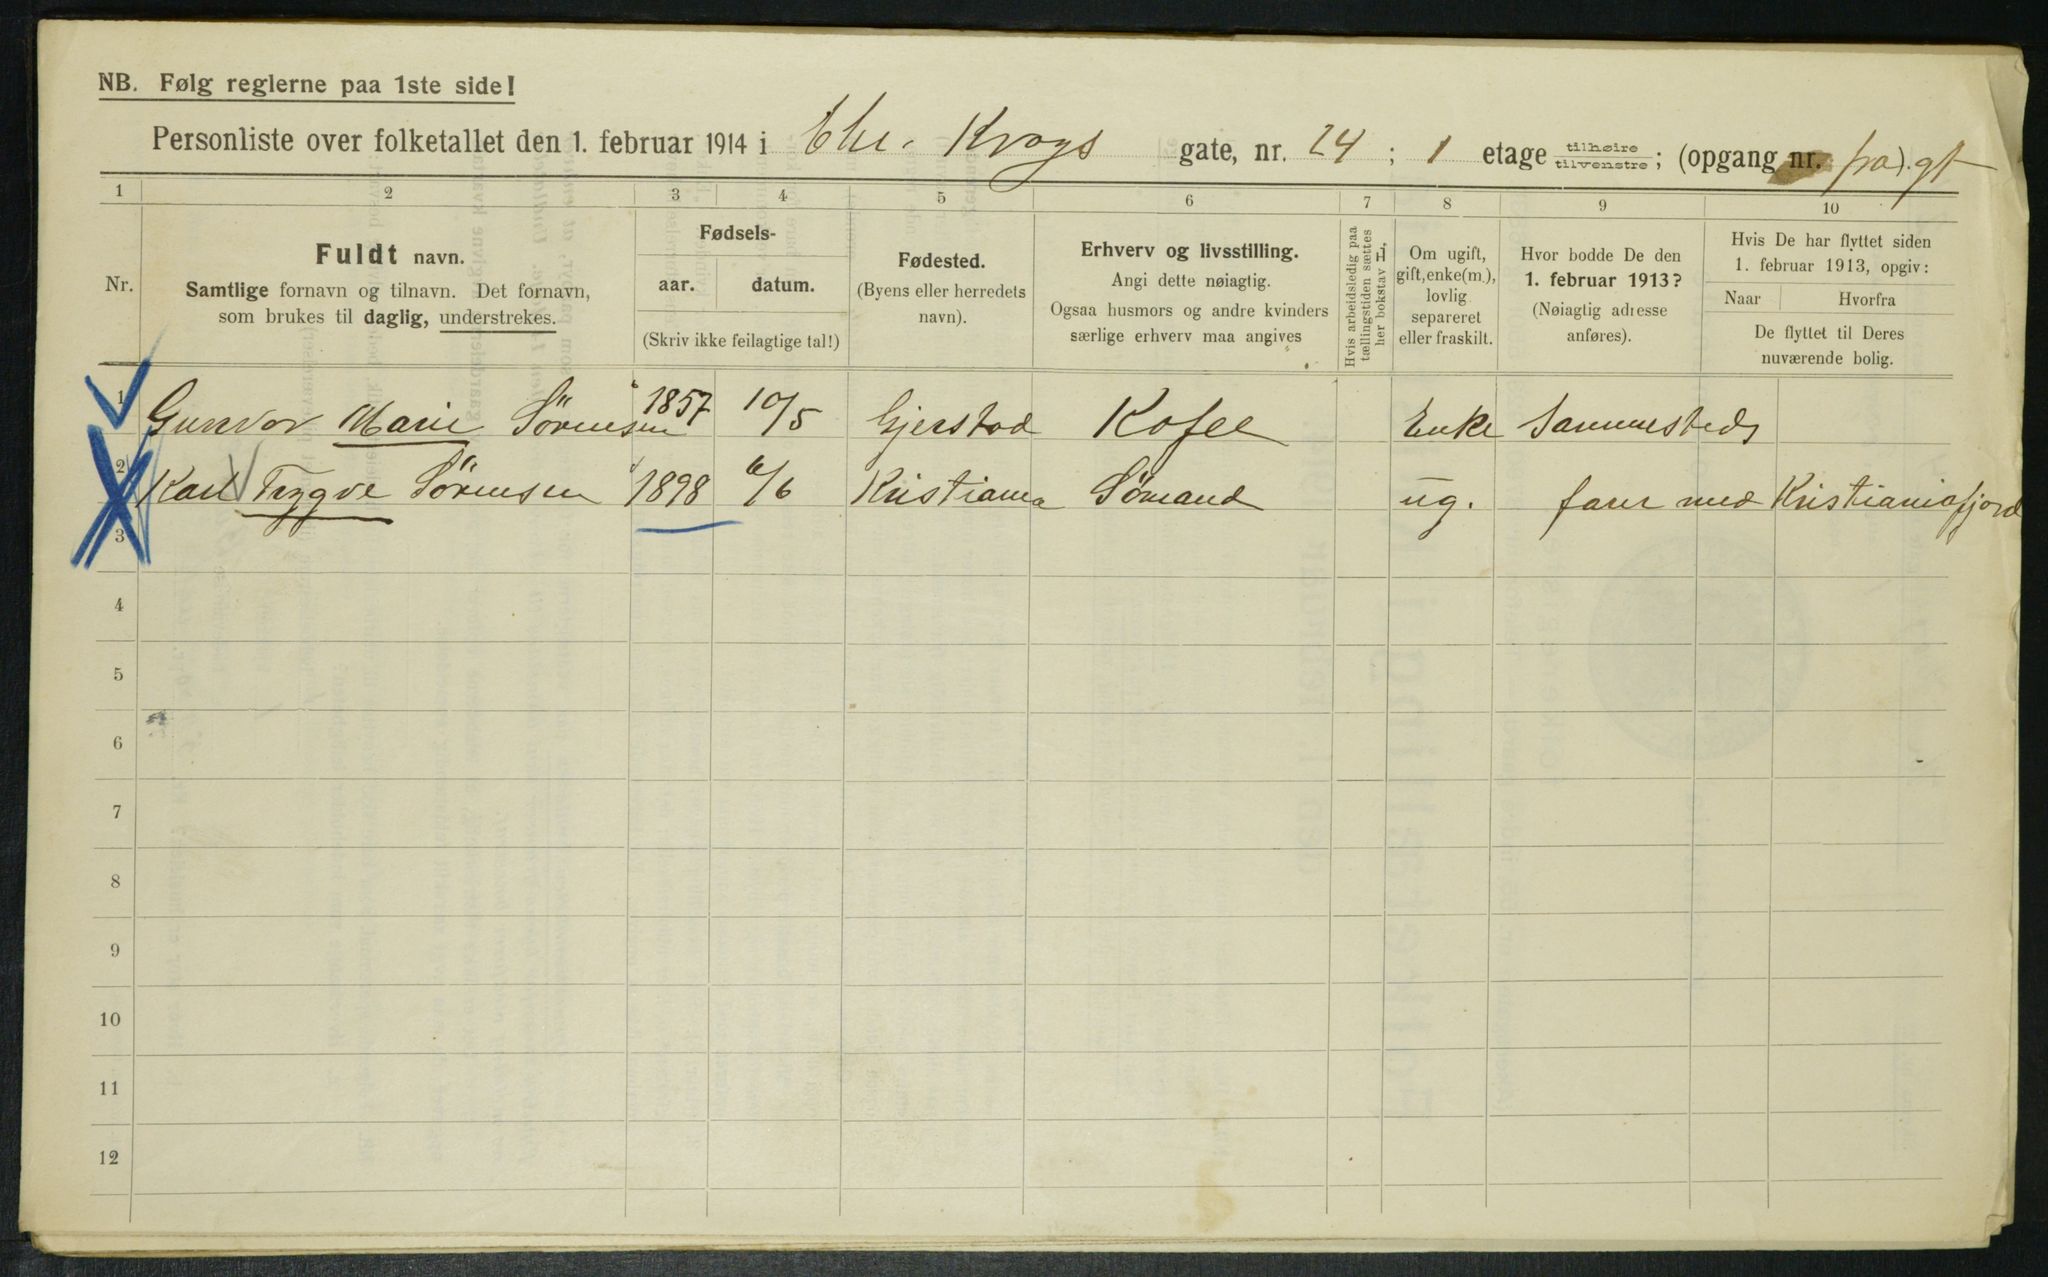 NB. Følg reglerne paa 1ste side!
Personliste over folketallet den 1. februar 1914 i Chr. Krogs gate, nr. 24 ; 1 etage tilhøire tilvenstre; (opgang nr. fra). gt
1 2 3 4 5 6 7 8 9 10
Nr.
Fuldt navn.
Samtlige fornavn og tilnavn. Det fornavn,
som brukes til daglig, understrekes.
Fødsels-
aar. datum.
(Skriv ikke feilagtige tal!)
Fødested.
(Byens eller herredets
navn).
Erhverv og livsstilling.
Angi dette nøiagtig.
Ogsaa husmors og andre kvinders
særlige erhverv maa angives
Hvis arbeidsledig paa
tællingstiden sættes
her bokstav L.
Om ugift,
gift, enke(m.),
lovlig
separeret
eller fraskilt.
Hvor bodde De den
1. februar 1913?
(Nøiagtig adresse
anføres).
Hvis De har flyttet siden
1. februar 1913, opgiv:
Naar Hvorfra
De flyttet til Deres
nuværende bolig.
1 Gunvor Marie Sörensen 1857 10/5 Gjerstad Kafee Enke Sammesteds
2 Karl Trygve Sörensen 1898 6/6 Kristiania Sömand ug. farer med Kristianiafjord
3
4
5
6
7
8
9
10
11
12